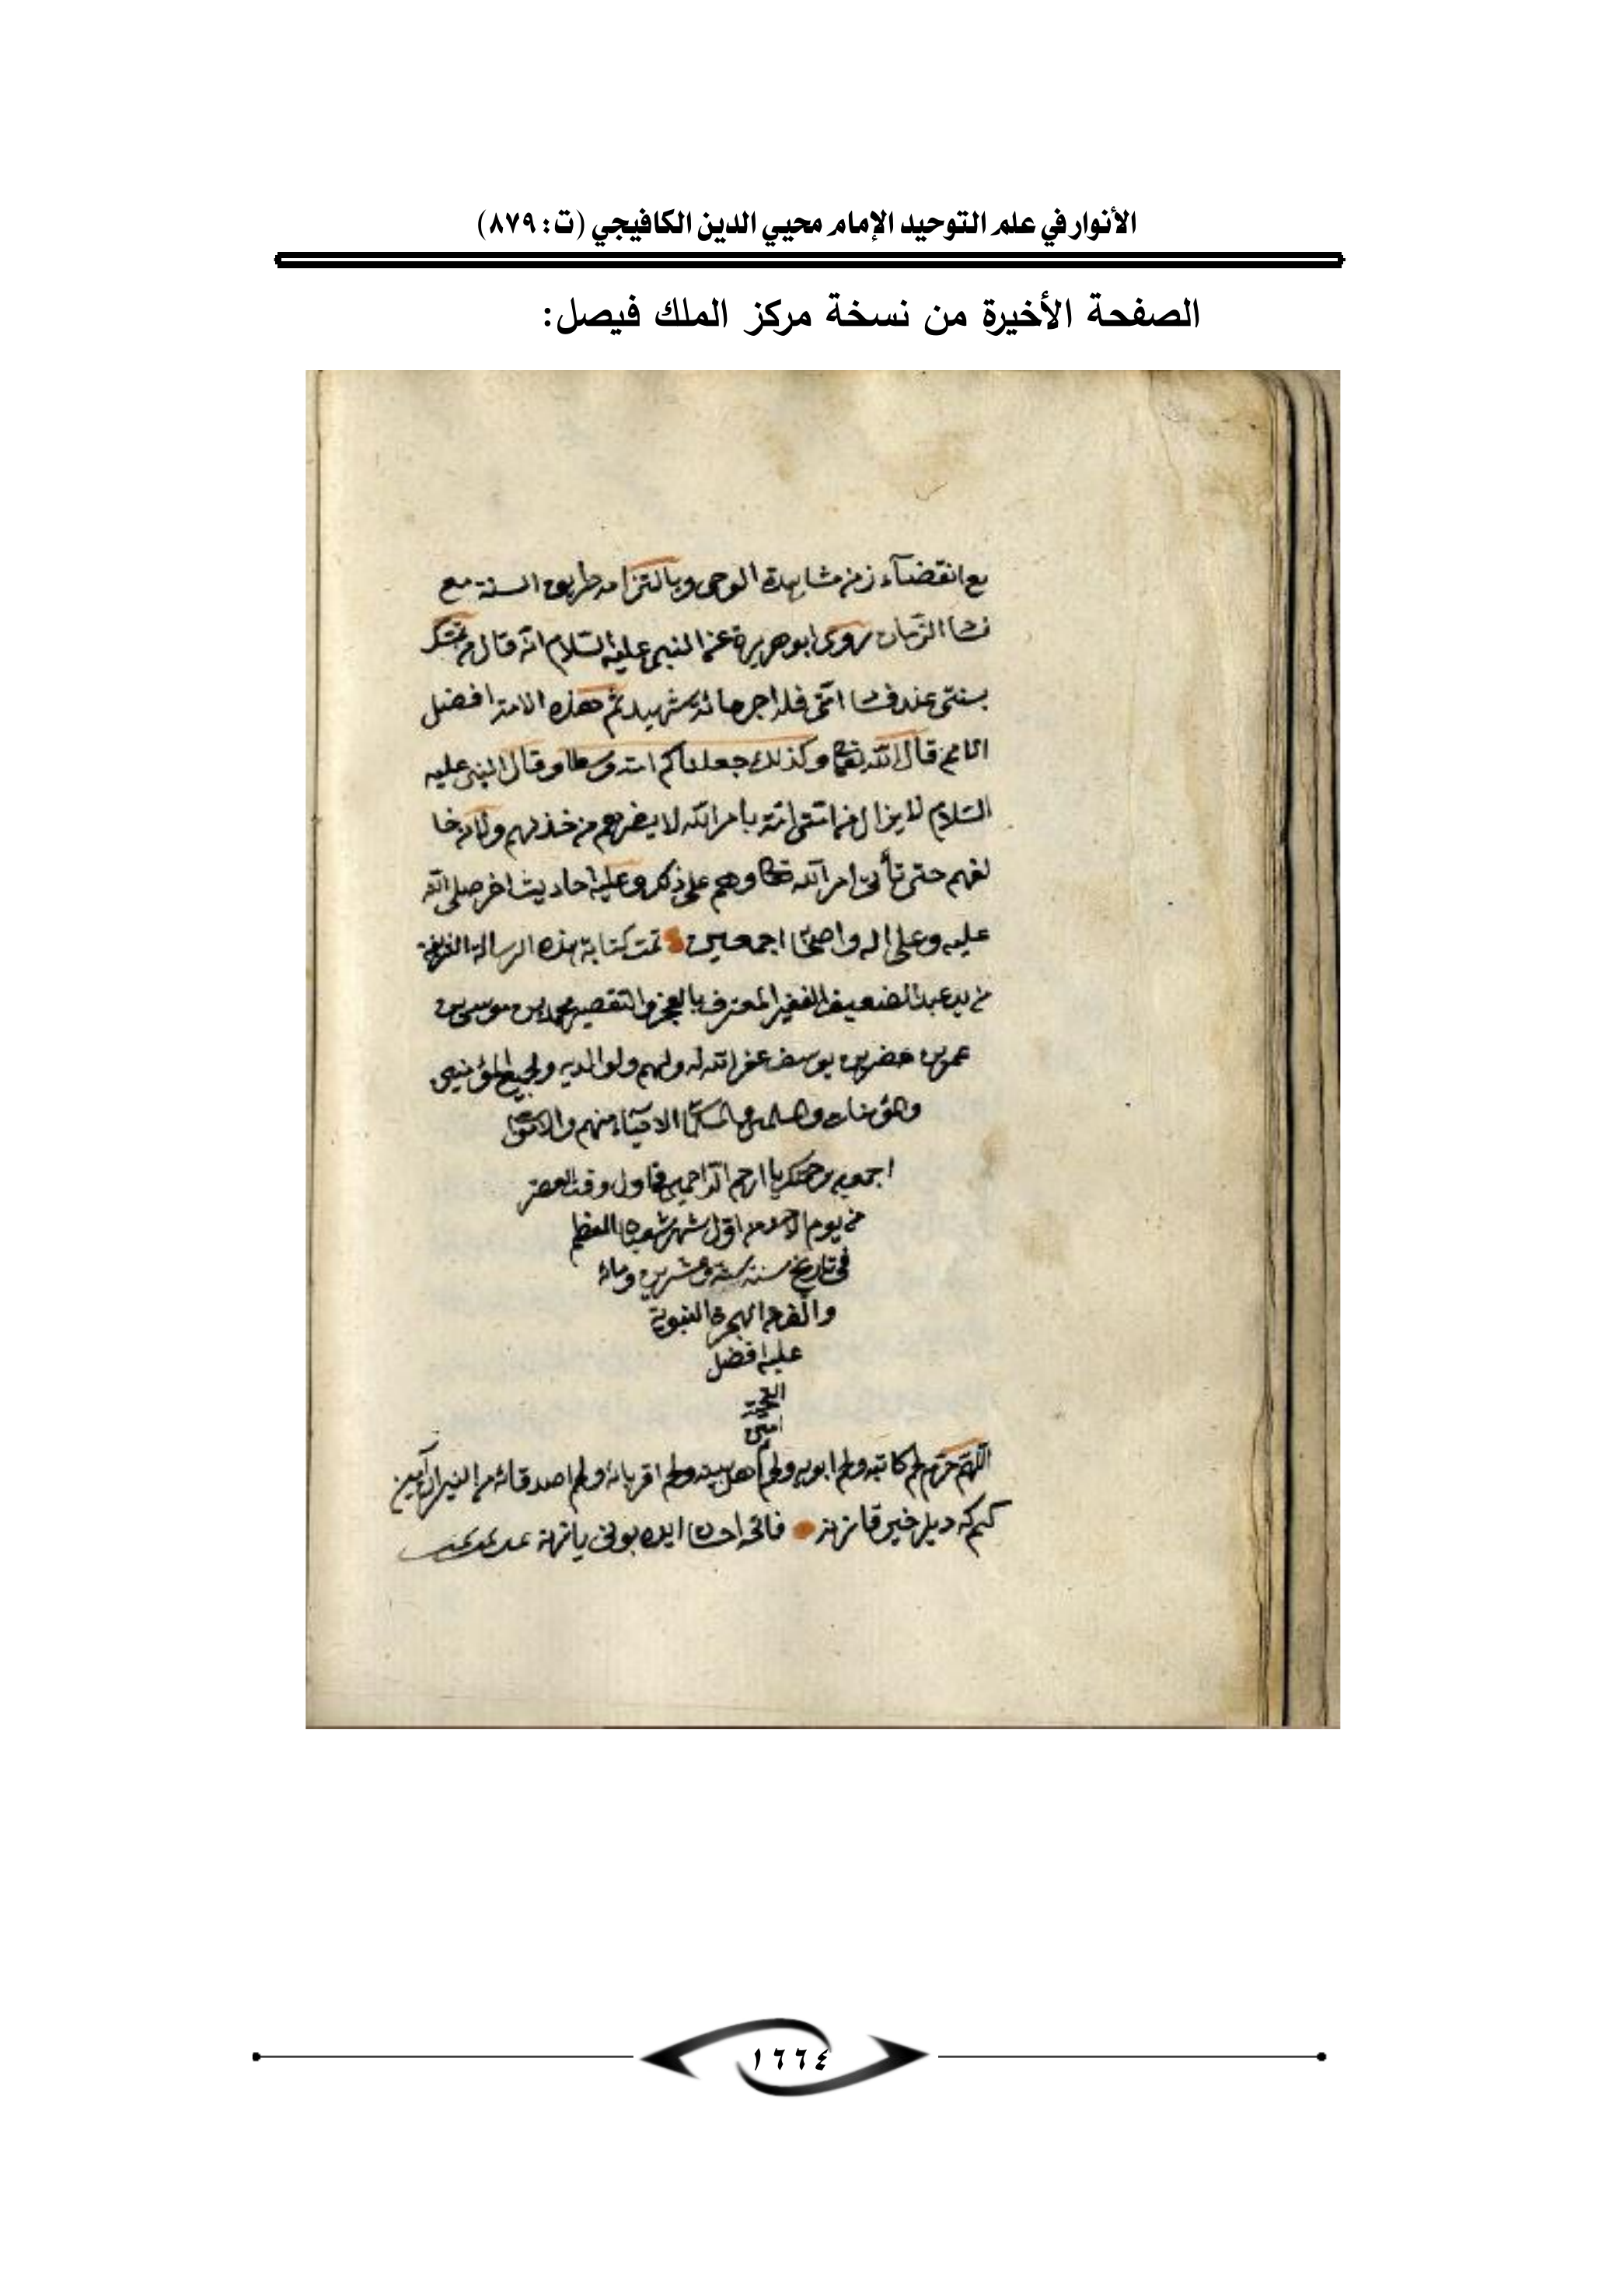 الأنوار في علم التوحيد الإمام محيي الدين الكافيجي (ت: ٨٧٩)
الصفحة الأخيرة من نسخة مركز الملك فيصل:
مع انقضاء زمن مشاهدة الوحي وبالتزام طريق السنة مع
الزمان روى ابو هريرة عن النبي عليه السلام انه قال من تمسك
بسنتي عند فساد امتي فله اجر مائة شهيد ثم هذه الامة افضل
الامم قال الله تعالى وكذلك جعلناكم امة وسطا وقال النبي عليه
السلام لا يزال من امتي امة بامر الله لا يضرهم من خذلهم ولا من خا
لفهم حتى تأتي امر الله تعالى وهم على ذلك وعليه احاديث اخر صلى الله
عليه وعلى اله واصحابه اجمعين تمت كتابة هذه الرسالة
من يد عبد الضعيف الفقير المعترف بالعجز والتقصير محمد بن موسى بن
عمر بن خضر بن يوسف غفر الله له ولهم ولوالديه ولجميع المؤمنين
والمؤمنات والمسلمين والمسلمات الاحياء منهم والاموات
اجمعين برحمتك يا ارحم الراحمين في اول وقت العصر
من يوم اول شهر شعبان المعظم
في تاريخ سنة ستة وعشرين ومائة
والف من الهجرة النبوية
عليه افضل
التحية
امين
اللهم حرم لحم كاتبه ولحم ابويه ولحم اهل بيته ولحم اقربائه ولحم اصدقائه من النيران آمين
كم كه ديلر خير قازنه فاتحه احسان ايده بونى يازنه
١٦٦٤